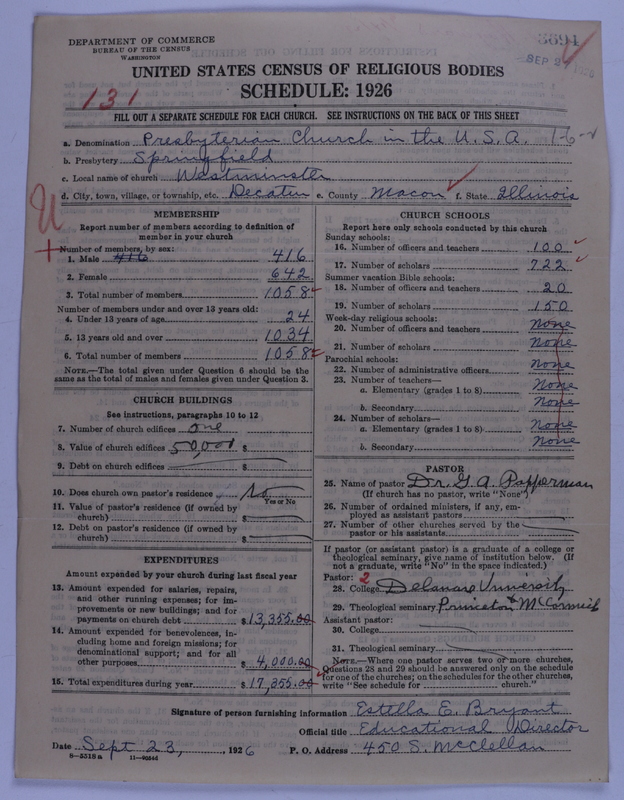 DEPARTMENT OF COMMERCE
BUREAU OF THE CENSUS
WASHINGTON
SEP 2
UNITED STATES CENSUS OF RELIGIOUS BODIES
SCHEDULE: 1926
131
FILL OUT A SEPARATE SCHEDULE FOR EACH CHURCH. SEE INSTRUCTIONS ON THE BACK OF THIS SHEET
a. Denomination Presbyterian Church in the U.S.A. 1-6-
b. Presbytery Springfield
c. Local name of church Westminster
d. City, town, village, or township, etc. Decatur e. County Macon f. State Illinois
MEMBERSHIP
Report number of members according to definition of
member in your church
Number of members, by sex:
1. Male 416 416
2. Female 642
3. Total number of members 1058
Number of members under and over 13 years old:
4. Under 13 years of age 24
5. 13 years old and over 1034
6. Total number of members 1058
NOTE.—The total given under Question 6 should be the
same as the total of males and females given under Question 3.
CHURCH BUILDINGS
See instructions, paragraphs 10 to 12
7. Number of church edifices one
8. Value of church edifices 50,000 $
9. Debt on church edifices $
10. Does church own pastor's residence No
Yes or No
11. Value of pastor's residence (if owned by
church) $
12. Debt on pastor's residence (if owned by
church) $
EXPENDITURES
Amount expended by your church during last fiscal year
13. Amount expended for salaries, repairs,
and other running expenses; for im-
provements or new buildings; and for
payments on church debt $13,355.00
14. Amount expended for benevolences, in-
cluding home and foreign missions; for
denominational support; and for all
other purposes $4,000.00
15. Total expenditures during year $17,355.00
CHURCH SCHOOLS
Report here only schools conducted by this church
Sunday schools:
16. Number of officers and teachers 100
17. Number of scholars 722
Summer vacation Bible schools:
18. Number of officers and teachers 20
19. Number of scholars 150
Week-day religious schools:
20. Number of officers and teachers None
21. Number of scholars None
Parochial schools:
22. Number of administrative officers None
23. Number of teachers—
a. Elementary (grades 1 to 8) None
b. Secondary None
24. Number of scholars—
a. Elementary (grades 1 to 8) None
b. Secondary None
PASTOR
25. Name of pastor Dr. G. A. Papperman
(If church has no pastor, write "None")
26. Number of ordained ministers, if any, em-
ployed as assistant pastors
27. Number of other churches served by the
pastor or his assistants
If pastor (or assistant pastor) is a graduate of a college or
theological seminary, give name of institution below. (If
not a graduate, write "No" in the space indicated.)
Pastor: 2
28. College Delaware University
29. Theological seminary Princeton & McCormick
Assistant pastor:
30. College
31. Theological seminary
NOTE.—Where one pastor serves two or more churches,
Questions 28 and 29 should be answered only on the schedule
for one of the churches; on the schedules for the other churches,
write "See schedule for church."
Signature of person furnishing information Estella E. Bryant
Official title Educational Director
Date Sept 23, 1926 P. O. Address 450 S. McClellan
8-5318a